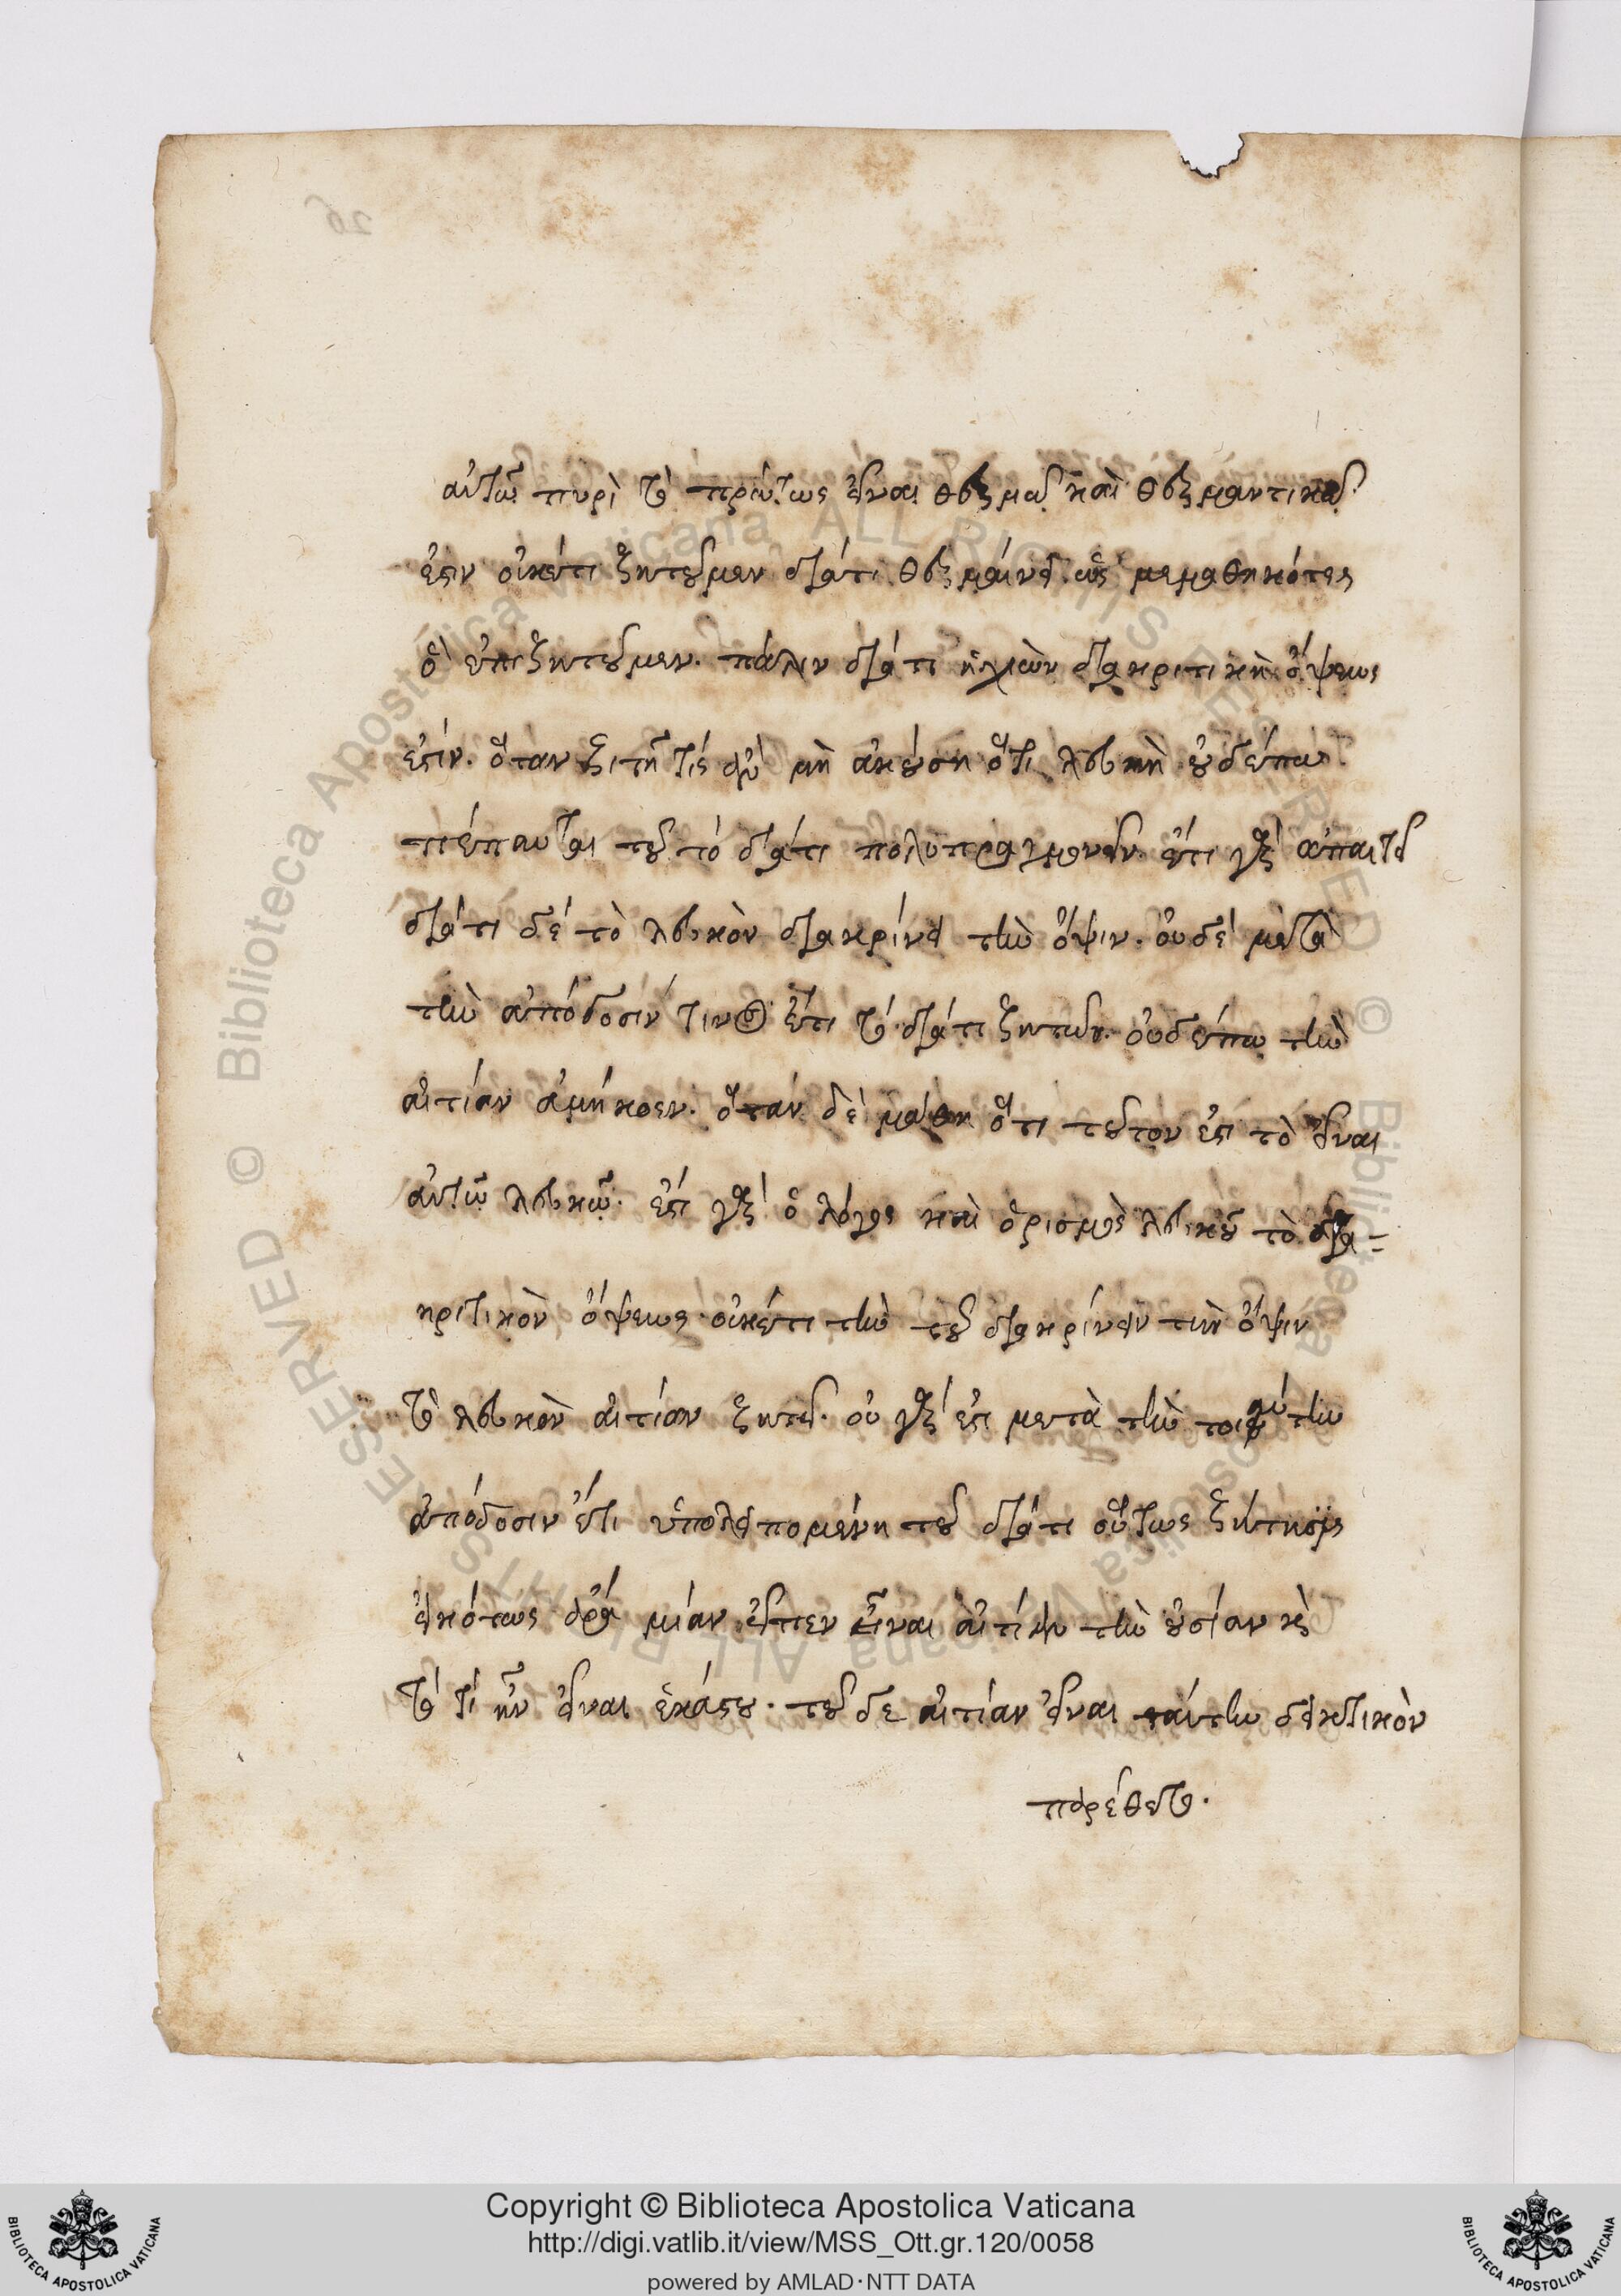 αὐτῶ πυρὶ τὸ πρώτως εἶναι θερμῶ καὶ θερμαντικῶ
ἐστιν οὐκέτι ζητοῦμεν διάτι θερμαίνει. ὡς μεμαθηκότες
ὃ ἐπεζητοῦμεν. πάλιν διάτι ἡ χιὼν διακριτικὴ ὄψεως
ἐστίν. ὅταν ζιτῆ τίς μὴ ἀκούση ὅτι λευκὴ οὐδέπω
πέπαυται τοῦ τό διάτι πολυπραγμονεῖν. ἔτι γὰρ ἀπαιτεῖ
διάτι δέ τὸ λευκὸν διακρίνει τὴν ὄψιν. οὐδέ μετὰ
τὴν ἀπόδοσίν τινος ἔτι τό διάτι ζητεῖν. οὐδέπω τὴν
αἰτίαν ἀκήκοεν. ὅταν δὲ μάθη ὅτι τοῦτον ἐστι τὸ εἶναι
αὐτῶ λευκῶ. ἐστί γὰρ ὁ λόγος καὶ ὁρισμὸς λευκοῦ τὸ δια-
κριτικὸν ὄψεως οὐκέτι τὴν τοῦ διακρίνειν τὴν ὄψιν
τὸ λευκὸν αἰτίαν ζητεῖ. οὐ γὰρ ἐστι μετὰ τὴν τοιαύτην
ἀπόδοσιν ἔτι ὑπολειπομένη τοῦ διάτι οὕτως ζήτησις
εἰκότως ἄρα μίαν εἶπεν εἶναι αἰτίαν τὴν οὐσίαν καὶ
τό τί ἦν εἶναι ἑκάστου. τοῦ δε αἰτίαν εἶναι ταύτην δεικτικὸν
παρέθετο.
Copyright © Biblioteca Apostolica Vaticana
http://digi.vatlib.it/view/MSS_Ott.gr.120/0058
powered by AMLAD·NTT DATA